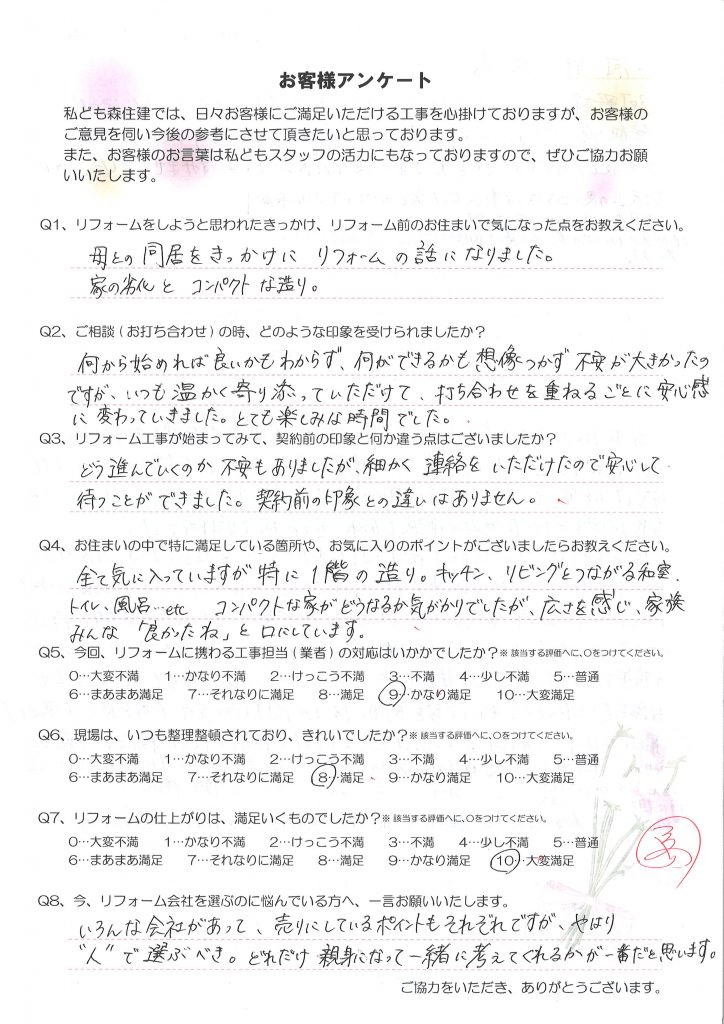 お客様アンケート
私ども森住建では、日々お客様にご満足いただける工事を心掛けておりますが、お客様の
ご意見を伺い今後の参考にさせて頂きたいと思っております。
また、お客様のお言葉は私どもスタッフの活力にもなっておりますので、ぜひご協力お願
いいたします。
Q1、リフォームをしようと思われたきっかけ、リフォーム前のお住まいで気になった点をお教えください。
母との同居をきっかけに リフォームの話になりました。
家の劣化と コンパクトな造り。
Q2、ご相談(お打ち合わせ)の時、どのような印象を受けられましたか?
何から始めれば良いかもわからず、何ができるかも想像つかず 不安が大きかったの
ですが、いつも温かく寄り添っていただけて、打ち合わせを重ねるごとに安心感
に変わっていきました。とても楽しみな時間でした。
Q3、リフォーム工事が始まってみて、契約前の印象と何か違う点はございましたか?
どう進んでいくのか 不安もありましたが、細かく 連絡を いただけたので安心して
待つことができました。契約前の印象との違いはありません。
Q4、お住まいの中で特に満足している箇所や、お気に入りのポイントがございましたらお教えください。
全て気に入っていますが特に1階の造り。キッチン、リビングとつながる和室、
トイレ、風呂…etc コンパクトな家がどうなるか気がかりでしたが、広さを感じ、家族
みんな「良かったね」と口にしています。
Q5、今回、リフォームに携わる工事担当(業者)の対応はいかかでしたか?※該当する評価へ、○をつけてください。
0…大変不満 1…かなり不満 2…けっこう不満 3…不満 4…少し不満 5…普通
6…まあまあ満足 7…それなりに満足 8…満足 9…かなり満足 10…大変満足
Q6、現場は、いつも整理整頓されており、きれいでしたか?※該当する評価へ、○をつけてください。
0…大変不満 1…かなり不満 2…けっこう不満 3…不満 4…少し不満 5…普通
6…まあまあ満足 7…それなりに満足 8…満足 9…かなり満足 10…大変満足
Q7、リフォームの仕上がりは、満足いくものでしたか?※該当する評価へ、○をつけてください。
0…大変不満 1…かなり不満 2…けっこう不満 3…不満 4…少し不満 5…普通
6…まあまあ満足 7…それなりに満足 8…満足 9…かなり満足 10…大変満足
Q8、今、リフォーム会社を選ぶのに悩んでいる方へ、一言お願いいたします。
いろんな会社があって、売りにしているポイントもそれぞれですが、やはり
"人"で選ぶべき。どれだけ親身になって一緒に考えてくれるかが一番だと思います。
ご協力をいただき、ありがとうございます。